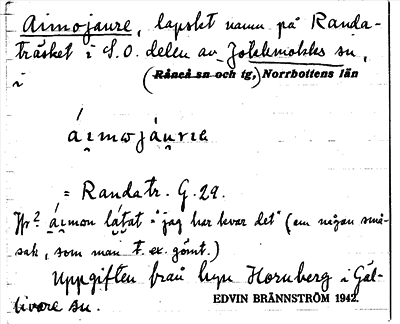 Aimojaure, lapskt namn på Randa-
träsket i S.O. delen av Jokkmokks sn,
i (Råneå sn och tg,) Norrbottens län
áimojáurıe
= Randatr. G. 29.
Jfr? áimon látat = "jag har kvar det" (om någon små-
sak, som man t. ex. gömt.)
Uppgiften från hyn Hornberg i Gäl-
livare sn.
EDVIN BRÄNNSTRÖM 1942.